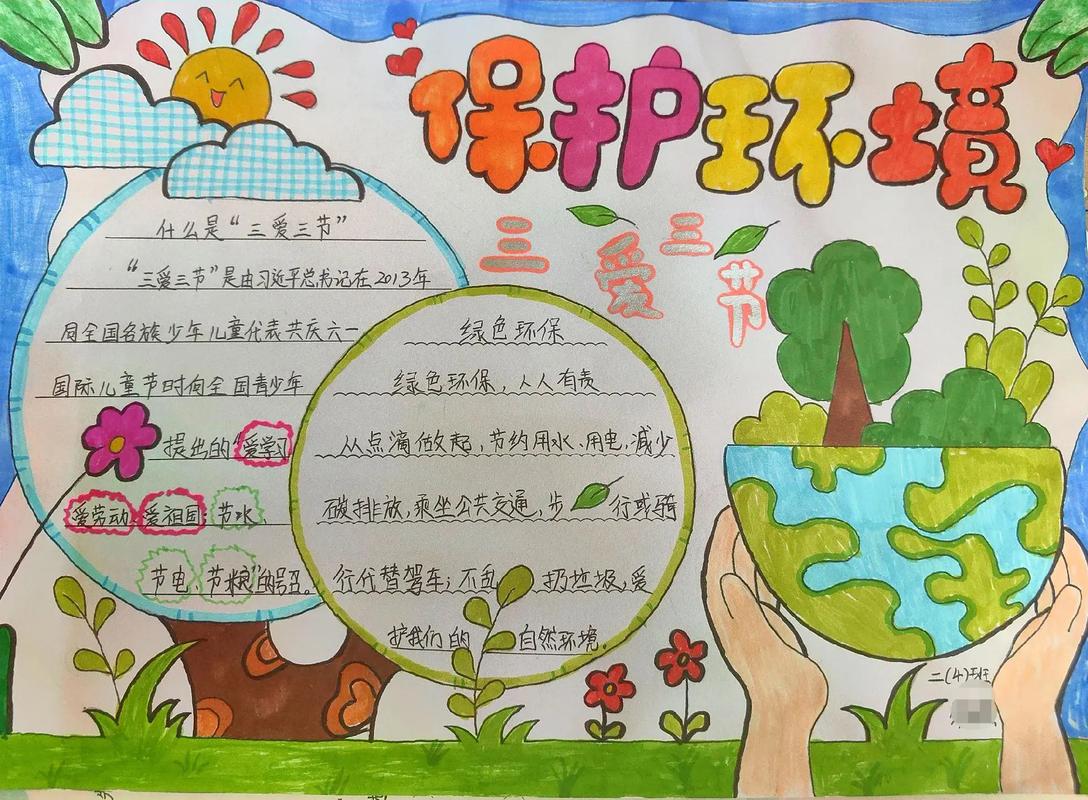 保护环境
三爱三节
什么是“三爱三节”
“三爱三节”是由习近平总书记在2013年
同全国各族少年儿童代表共庆六一
国际儿童节时向全国青少年
提出的“爱学习
爱劳动 爱祖国 节水
节电 节粮”的号召。
绿色环保
绿色环保,人人有责
从点滴做起,节约用水、用电,减少
碳排放,乘坐公共交通,步行或骑
行代替驾车;不乱扔垃圾,爱
护我们的自然环境。
二(4)班